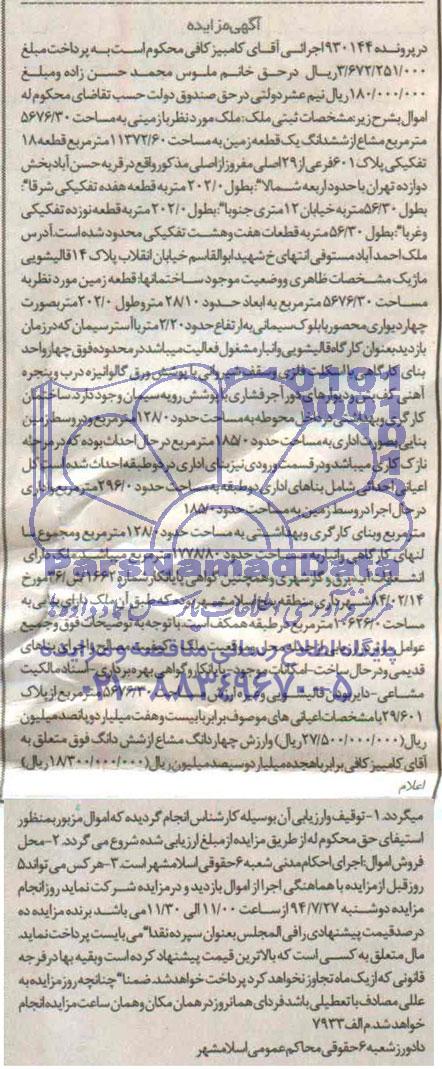 آگهی مزایده
در پرونده ۹۳۰۱۴۴ اجرائی آقای کامبیز کافی محکوم است به پرداخت مبلغ
۳/۶۷۲/۲۵۱/۰۰۰ ریال در حق خانم ملوس محمد حسن زاده و مبلغ
۱۸۰/۰۰۰/۰۰۰ ریال نیم عشر دولتی در حق صندوق دولت حسب تقاضای محکوم له
اموال بشرح زیر: مشخصات ثبتی ملک: ملک مورد نظر با زمینی به مساحت ۵۶۷۶/۳۰
متر مربع مشاع از ششدانگ یک قطعه زمین به مساحت ۱۱۳۷۲/۶۰ متر مربع قطعه ۱۸
تفکیکی پلاک ۶۰۱ فرعی از ۲۹ اصلی مفروز از اصلی مذکور واقع در قریه حسن آباد بخش
دوازده تهران با حدود اربعه شمالا": بطول ۲۰۲/۰ متر به قطعه هفده تفکیکی شرقا":
بطول ۵۶/۳۰ متر به خیابان ۱۲ متری جنوبا": بطول ۲۰۲/۰ متر به قطعه نوزده تفکیکی
و غربا": بطول ۵۶/۳۰ متر به قطعات هفت و هشت تفکیکی محدود شده است. آدرس
ملک احمد آباد مستوفی انتهای خ شهید ابوالقاسم خیابان انقلاب پلاک ۱۴ قالیشویی
ماژیک مشخصات ظاهری و وضعیت موجود ساختمانها: قطعه زمین مورد نظر به
مساحت ۵۶۷۶/۳۰ متر مربع به ابعاد حدود ۲۸/۱۰ متر و طول ۲۰۲/۰ متر بصورت
چهاردیواری محصور با بلوک سیمانی به ارتفاع حدود ۲/۲۰ متر با آستر سیمان که در زمان
بازدید بعنوان کارگاه قالیشویی و انبار مشغول فعالیت میباشد در محدوده فوق چهار واحد
بنای کارگاهی با اسکلت فلزی و سقف شیروانی با پوشش ورق گالوانیزه درب و پنجره
آهنی کف بتن و دیوارهای دور آجر فشاری با پوشش رویه سیمان وجود دارد. ساختمان
کارگری و بهداشتی در داخل محوطه به مساحت حدود ۱۲۸/۰ متر مربع و در وسط زمین
بنایی بصورت اداری به مساحت حدود ۱۸۵/۰ متر مربع در حال احداث بوده که در مرحله
نازک کاری میباشد و در قسمت ورودی نیز بنای اداری در دو طبقه احداث شده است کل
اعیانی احداثی شامل بناهای اداری دو طبقه به مساحت حدود ۲۹۶/۰ متر مربع و اداری
در حال اجرا در وسط زمین به مساحت حدود ۱۸۵/۰
متر مربع و بنای کارگری و بهداشتی به مساحت حدود ۱۲۸/۰ متر مربع و مجموع سا
لنهای کارگاهی و انبار به مساحت حدود ۱۷۷۸/۸۰ متر مربع میباشد. ملک دارای
انشعابات آب، برق و گاز شهری و همچنین گواهی پایانکار شماره ۱۶۶۲/ش/۳۶ مورخ
۸۴/۰۲/۱۴ شهرداری منطقه
مساحت متر مربع در طبقه همکف است. با توجه به توضیحات فوق و جمیع
عوامل
قدیمی و در حال ساخت - امکانات موجود - پایانکار و گواهی بهره برداری - اسناد مالکیت
مشاعی - دایر بودن قالیشویی و غیره ارزش ۵۶۷۶/۳۰ متر مربع از پلاک
۲۹/۶۰۱ با مشخصات اعیانی های موصوف برابر با بیست و هفت میلیارد و پانصد میلیون
ریال (۲۷/۵۰۰/۰۰۰/۰۰۰ ریال) و ارزش چهار دانگ مشاع از شش دانگ فوق متعلق به
آقای کامبیز کافی برابر با هجده میلیارد و سیصد میلیون ریال (۱۸/۳۰۰/۰۰۰/۰۰۰ ریال)
اعلام
میگردد. ۱- توقیف و ارزیابی آن بوسیله کارشناس انجام گردیده که اموال مزبور بمنظور
استیفای حق محکوم له از طریق مزایده از مبلغ ارزیابی شده شروع می گردد. ۲- محل
فروش اموال: اجرای احکام مدنی شعبه ۶ حقوقی اسلامشهر است. ۳- هر کس می تواند ۵
روز قبل از مزایده با هماهنگی اجرا از اموال بازدید و در مزایده شرکت نماید روز انجام
مزایده دوشنبه ۹۴/۷/۲۷ از ساعت ۱۱/۰۰ الی ۱۱/۳۰ می باشد برنده مزایده ده
درصد قیمت پیشنهادی را فی المجلس بعنوان سپرده نقدا" می بایست پرداخت نماید.
مال متعلق به کسی است که بالاترین قیمت پیشنهاد کرده است و بقیه بها در فرجه
قانونی که از یک ماه تجاوز نخواهد کرد پرداخت خواهد شد. ضمنا" چنانچه روز مزایده به
عللی مصادف با تعطیلی باشد فردای همانروز در همان مکان و همان ساعت مزایده انجام
خواهد شد. م الف ۷۹۳۳
دادورز شعبه ۶ حقوقی محاکم عمومی اسلامشهر
ParsNamadData
پایگاه اطلاع رسانی مناقصه و مزایده
۰۲۱-۸۸۳۴۹۶۷۰-۵